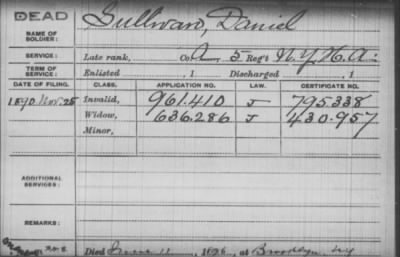 DEAD
NAME OF SOLDIER: Sullivan, Daniel
SERVICE: Late rank, Co. A, 5 Reg't N.Y. H.A.
TERM OF SERVICE: Enlisted , 1 Discharged , 1
DATE OF FILING. CLASS. APPLICATION NO. LAW. CERTIFICATE NO.
1890 Nov. 25 Invalid, 961.410 J 795338
Widow, 636.286 J 430.957
Minor,
ADDITIONAL SERVICES:
REMARKS:
Died June 11, 1896, at Brooklyn, NY